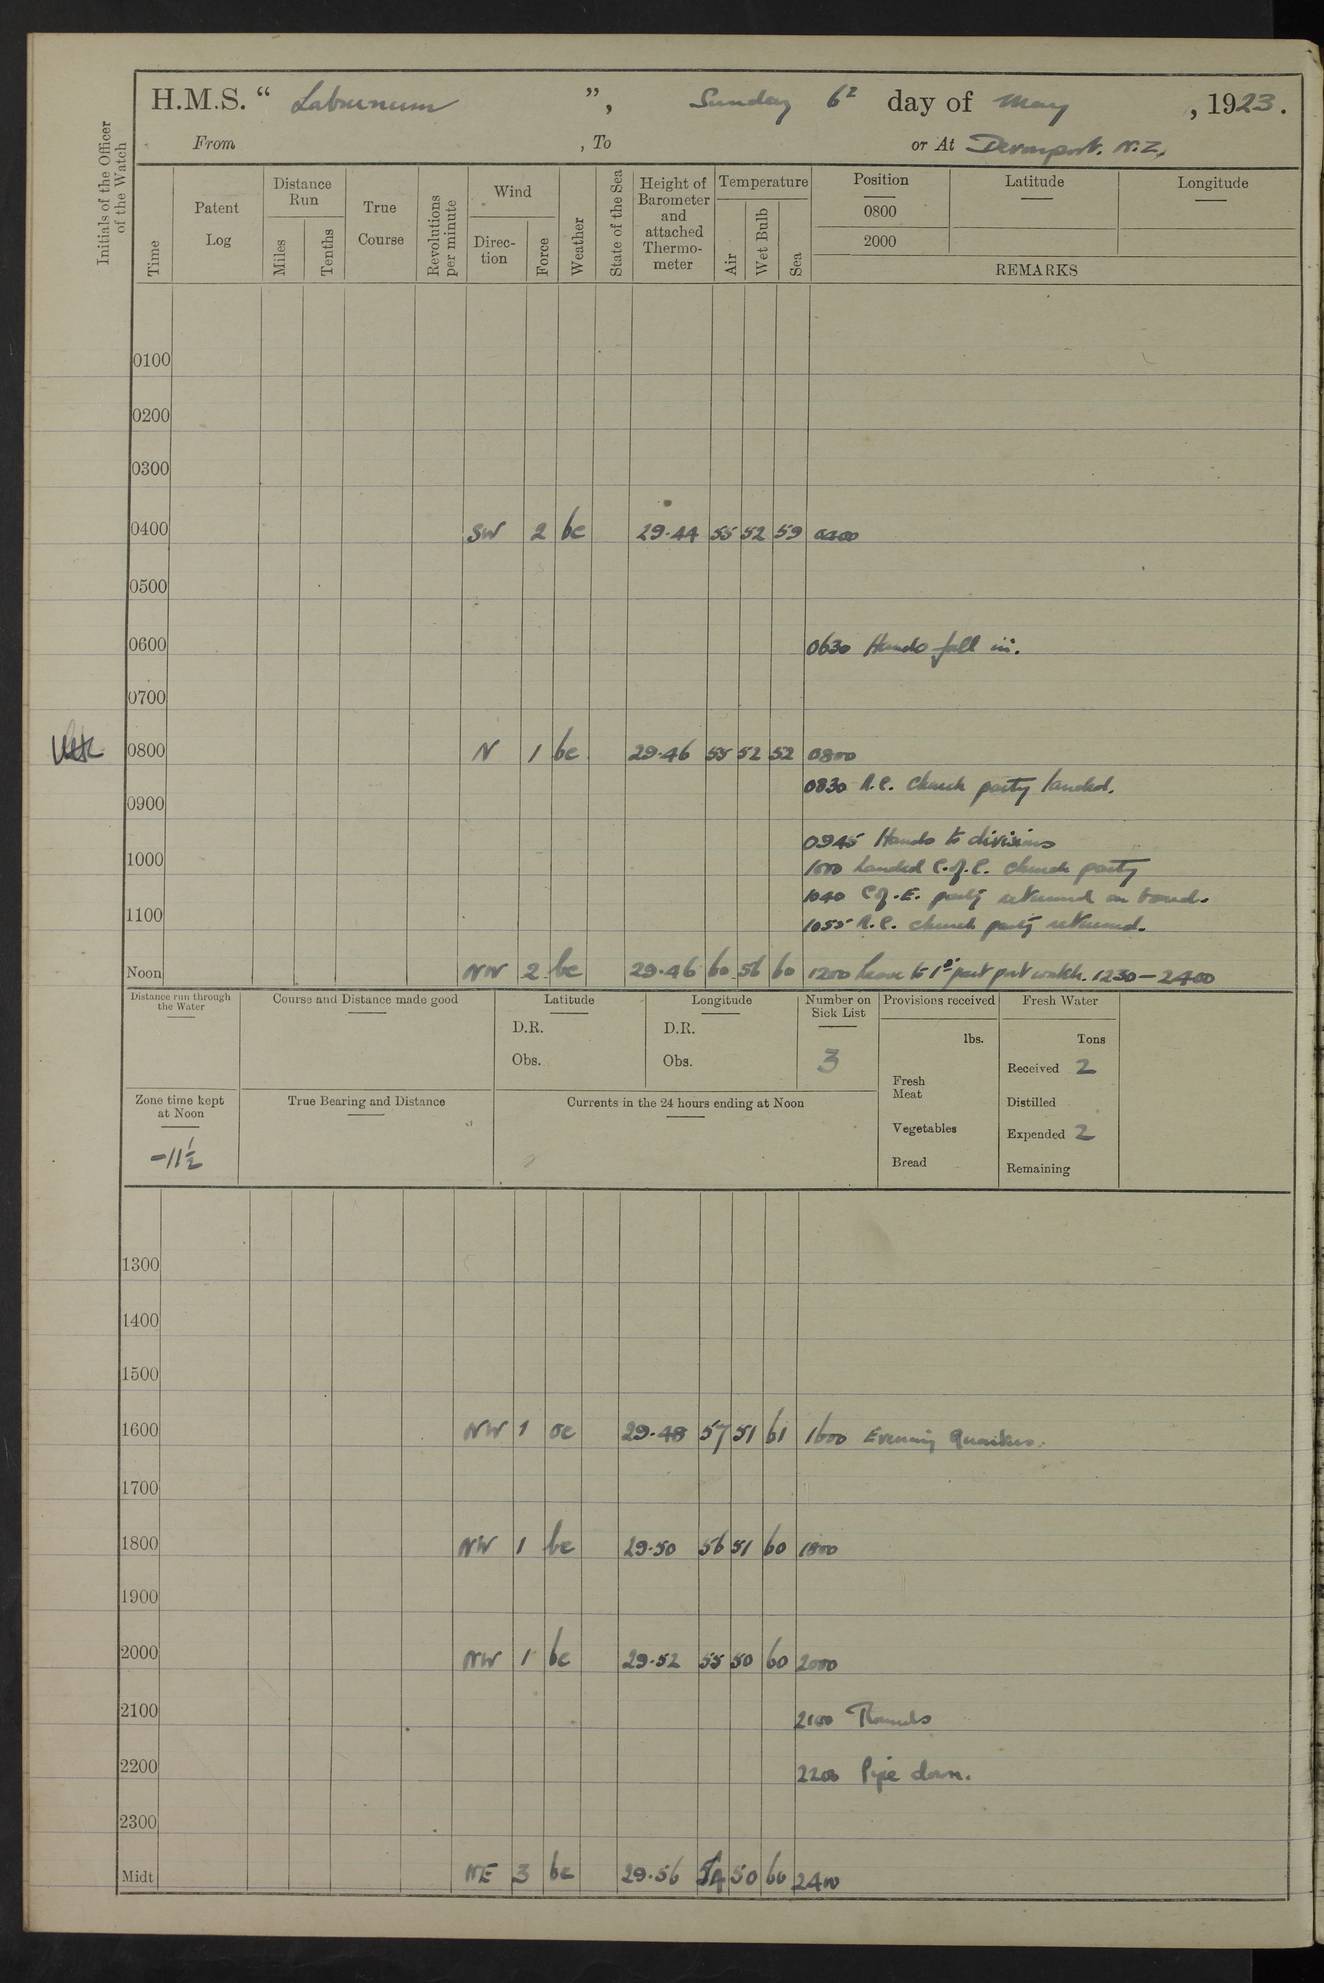 H.M.S. “ Laburnum ”, Sunday 6th day of May, 1923.
From , To or At Devonport. N.Z.
Initials of the Officer of the Watch
Time
Patent Log
Distance Run
Miles
Tenths
True Course
Revolutions per minute
Wind
Direc-tion
Force
Weather
State of the Sea
Height of Barometer and attached Thermo-meter
Temperature
Air
Wet Bulb
Sea
Position
0800
2000
Latitude
Longitude
REMARKS
0100
0200
0300
0400 SW 2 bc 29.44 55 52 59 0400
0500
0600 0630 Hands fall in.
0700
0800 N 1 bc 29.46 55 52 52 0800
0830 R.C. Church party landed.
0900
0945 Hands to divisions
1000 1000 Landed C.of.E. church party
1040 C of. E. party returned on board.
1100 1055 R.C. church party returned.
Noon NW 2 bc 29.46 60 56 60 1200 Leave to 1st part port watch. 1230 - 2400
Distance run through the Water
Course and Distance made good
Latitude
D.R.
Obs.
Longitude
D.R.
Obs.
Number on Sick List
3
Provisions received
lbs.
Fresh Meat
Vegetables
Bread
Fresh Water
Tons
Received 2
Distilled
Expended 2
Remaining
Zone time kept at Noon
-11½
True Bearing and Distance
Currents in the 24 hours ending at Noon
1300
1400
1500
1600 NW 1 oc 29.48 57 51 61 1600 Evening Quarters.
1700
1800 NW 1 bc 29.50 56 51 60 1800
1900
2000 NW 1 bc 29.52 55 50 60 2000
2100 2100 Rounds
2200 2200 Pipe down.
2300
Midt NE 3 bc 29.56 54 50 60 2400